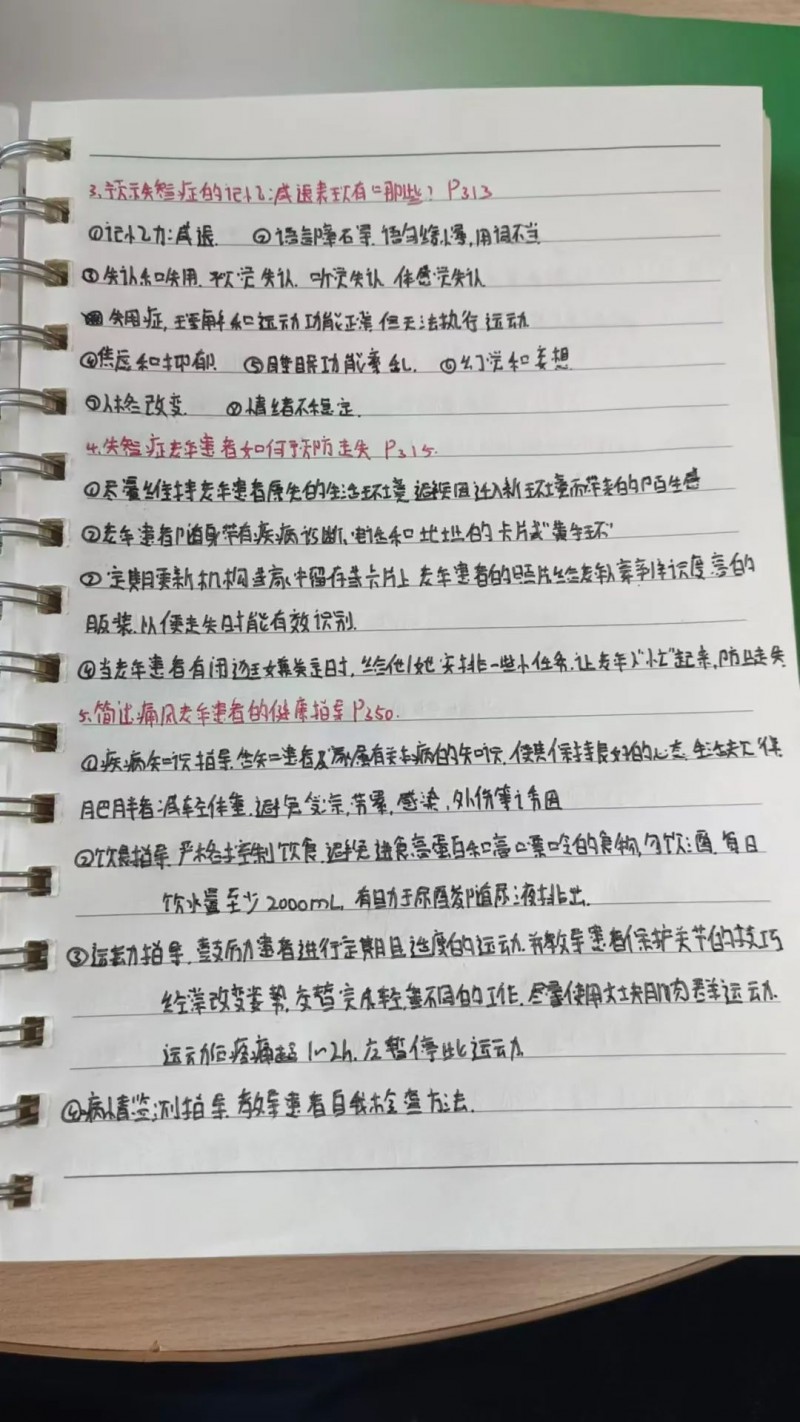 3.预示失智症的记忆减退表现有哪些? P313
①记忆力减退. ②语言障碍 语句错漏,用词不当
③失认和失用. 视觉失认. 听觉失认 体感觉失认
失用症,理解和运动功能正常但无法执行运动
④焦虑和抑郁. ⑤睡眠功能紊乱. ⑥幻觉和妄想
⑦人格改变. ⑦情绪不稳定.
4.失智症老年患者如何预防走失 P315.
①尽量维持老年患者原先的生活环境 避免因迁入新环境而带来的陌生感
②老年患者随身带有疾病诊断、电话和地址的卡片或“黄手环”
③定期更新机构或家中留存或卡片上老年患者的照片给老年人穿辨识度高的
服装,以便走失时能有效识别.
④当老年患者有闲逛或失定时,给他/她安排一些小任务.让老年人“忙”起来,防止走失
5.简述痛风老年患者的健康指导P350.
①疾病知识指导.告知患者及家属有关疾病的知识,使其保持良好的心态.生活
肥胖者减轻体重.避免劳累,感染,外伤等诱因
②饮食指导.严格控制饮食.避免进食高蛋白和高嘌呤的食物,勿饮酒.每日
饮水量至少2000mL,有助于尿酸随尿液排出.
③运动指导.鼓励患者进行定期且适度的运动.并教导患者保护关节的技巧
经常改变姿势.交替完成轻重不同的工作.尽量使用大块肌肉群运动.
运动后疼痛超1~2h.应暂停此运动
④病情监测指导.教导患者自我检查方法.